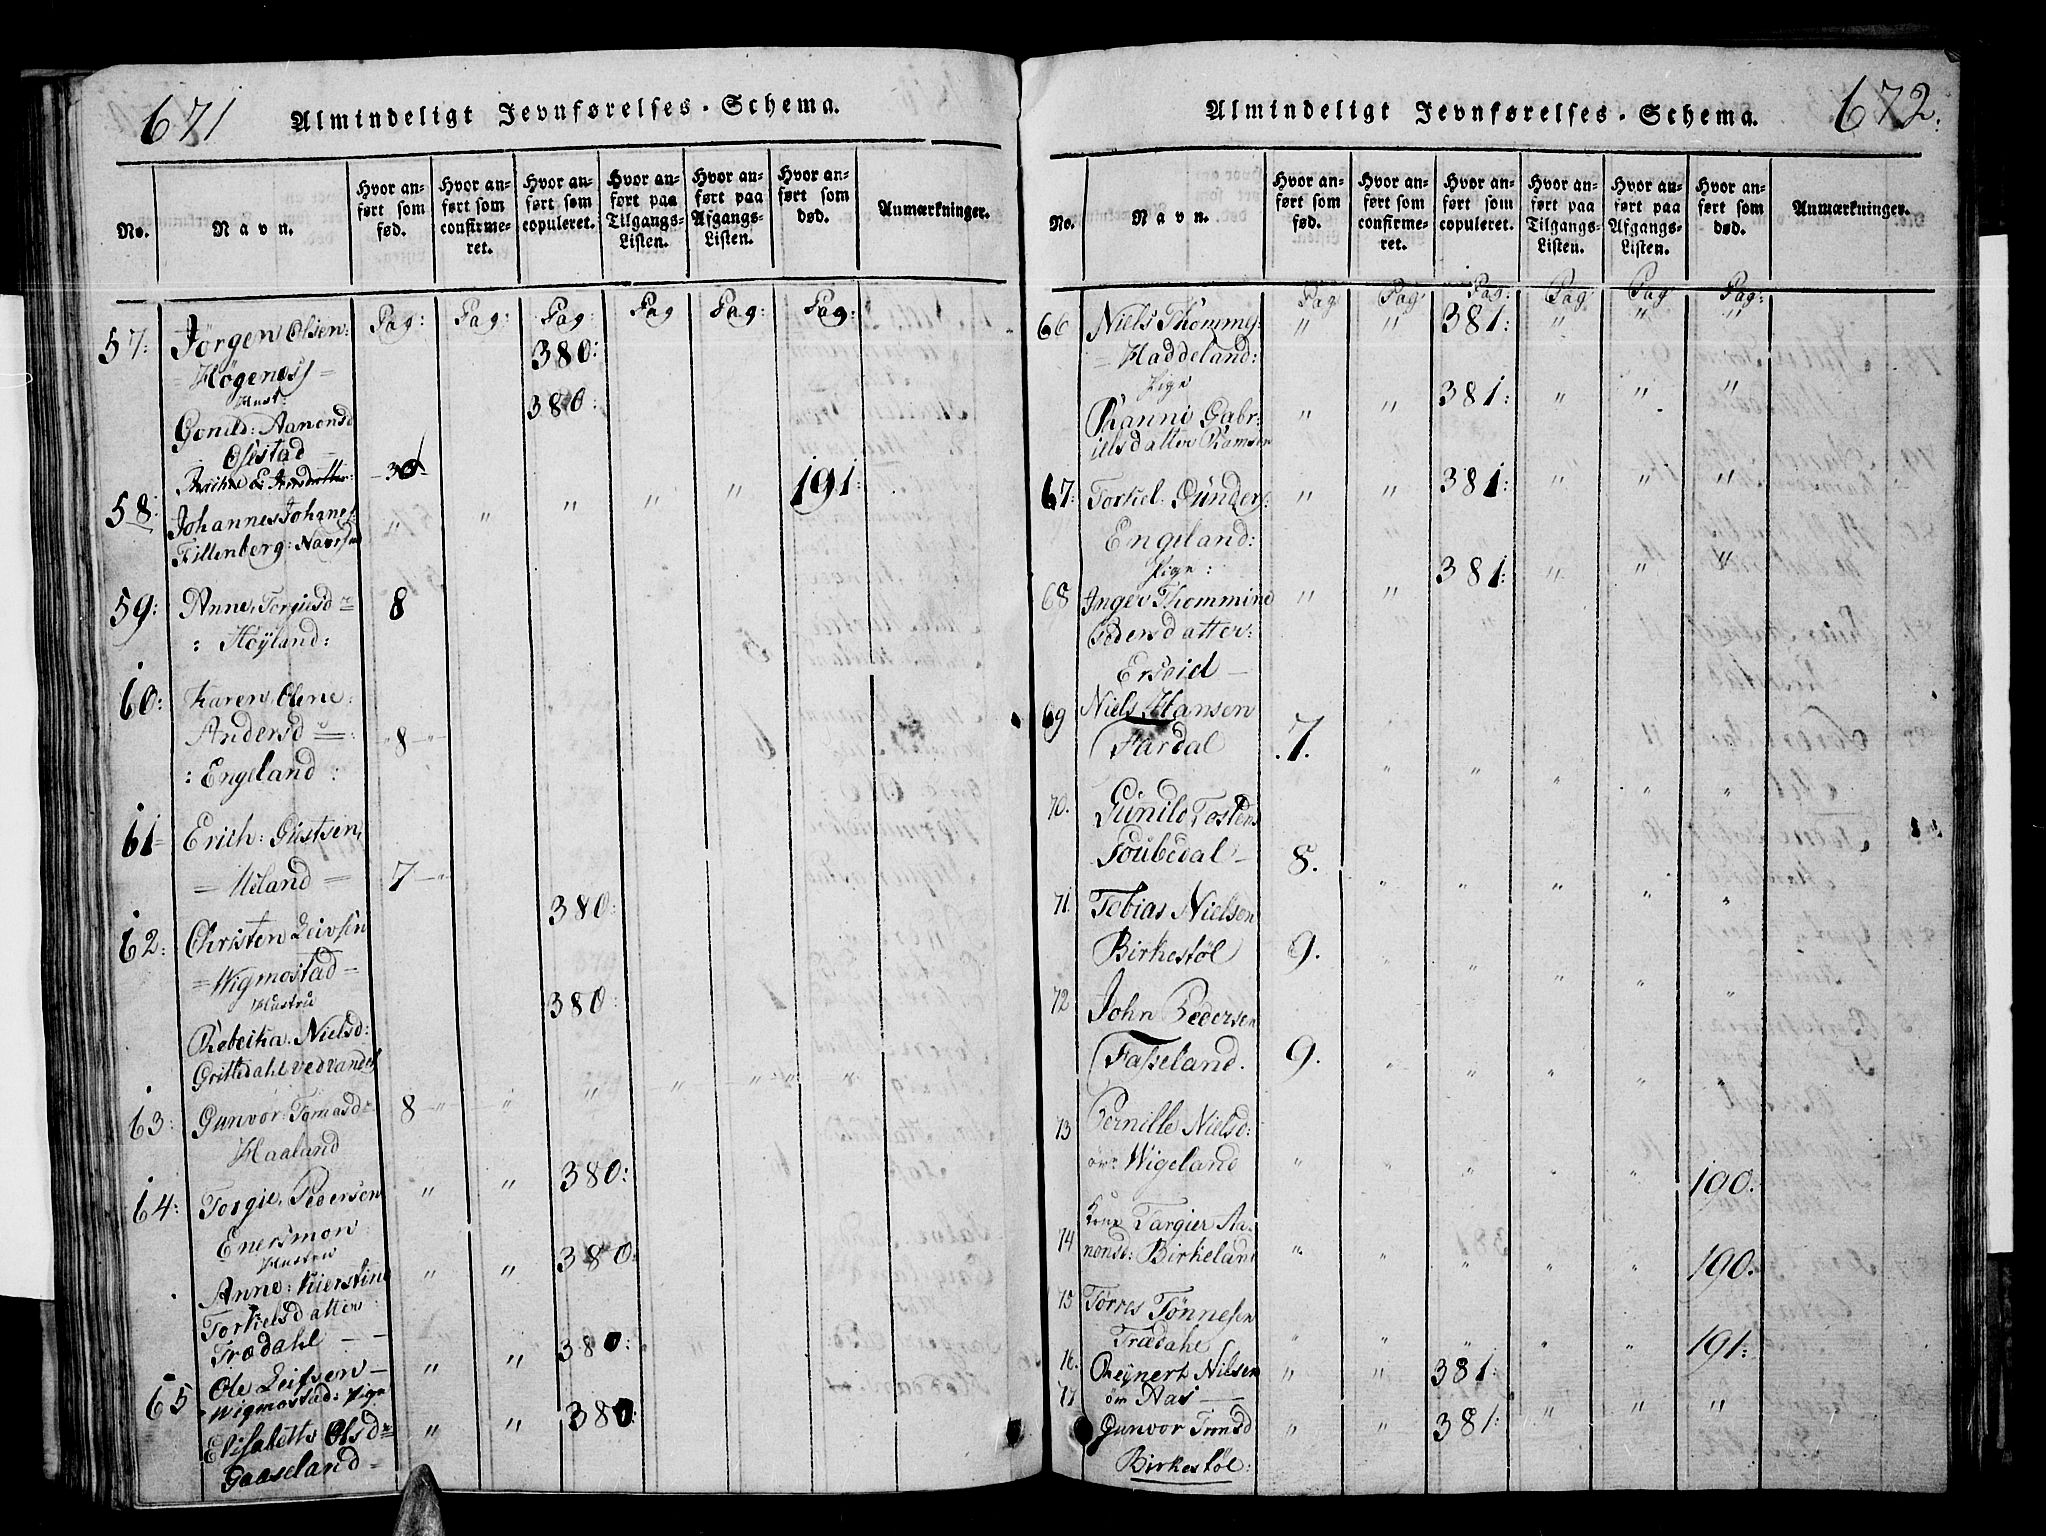 671 Almindeligt Jevnførelses-Schema.
No. Navn. Hvor anført som fød. Hvor anført som confirmeret. Hvor anført som copuleret. Hvor anført paa Tilgangs-Listen. Hvor anført paa Afgangs-Listen. Hvor anført som død. Anmærkninger.
Pag: Pag: Pag: Pag Pag: Pag:
57: Jörgen Olsen: 380:
= Högenes =
Hust: 380:
Gonild: Aanonsd
Osestad
30
58: Johannes Johanes: " " " " " 191:
Fillenberg:
59: Anne Torgiesd 8
: Höÿland:
60: Karen Olene:
Andersd = : " 8 "
: Engeland :
61 = Erich: Gustsen,
= Uiland = 7 "
380:
62: Christen Leivsen
= Wigmostad =
Hustru 380:
Rebeika. Nielsd:
63: Gunvor Tomasd 8 " " " " " "
Haaland
64: Torgie. Pedersen " " 380:
Enersmon
Hustru
Anne: Kierstine " " 380:
Torkielsdatter
Trædahl - -
65 Ole Leifsen - " " 380:
Wigmostad: Pige
Elisabeth Olsd " " 380:
Gaaseland =
672: Almindeligt Jevnførelses-Schema.
No. Navn. Hvor anført som fød. Hvor anført som confirmeret. Hvor anført som copuleret. Hvor anført paa Tilgangs-Listen. Hvor anført paa Afgangs-Listen. Hvor anført som død. Anmærkninger.
Pag Pag Pag: Pag Pag Pag:
66 Niels Thommes: " " 381: " " "
= Haddeland:
Pige
Ranni Gabr: " " 381: " " "
ielsdatter Ramsen
67: Torkiel Gunders: " " 381: " " "
Engeland:
Pige:
68 Inger Thommine " " 381: " " "
Pedersdatter:
Erseid -
69 Niels Hansen
Fardal .7. " " " " "
70. Gunild Tostens
Foubedal - 8. " " " " "
71. Tobias Nielsen
Birkestöl 9. " " " " "
72 John Pedersen
Fasseland. 9. " " " " "
73 Pernille Nielsd:
öv: Wigeland " " " " " 190.
74 Kone Targier Aa-
nonsd: Birkeland " " " " " 190.
75 Törres Tönnesen
Trædahl " " " " " 191:
76. Reÿnert Nilsen " " 381: " " "
öv Aas -
77 Gunvor Tomsd " " 381:
Birkestöl: